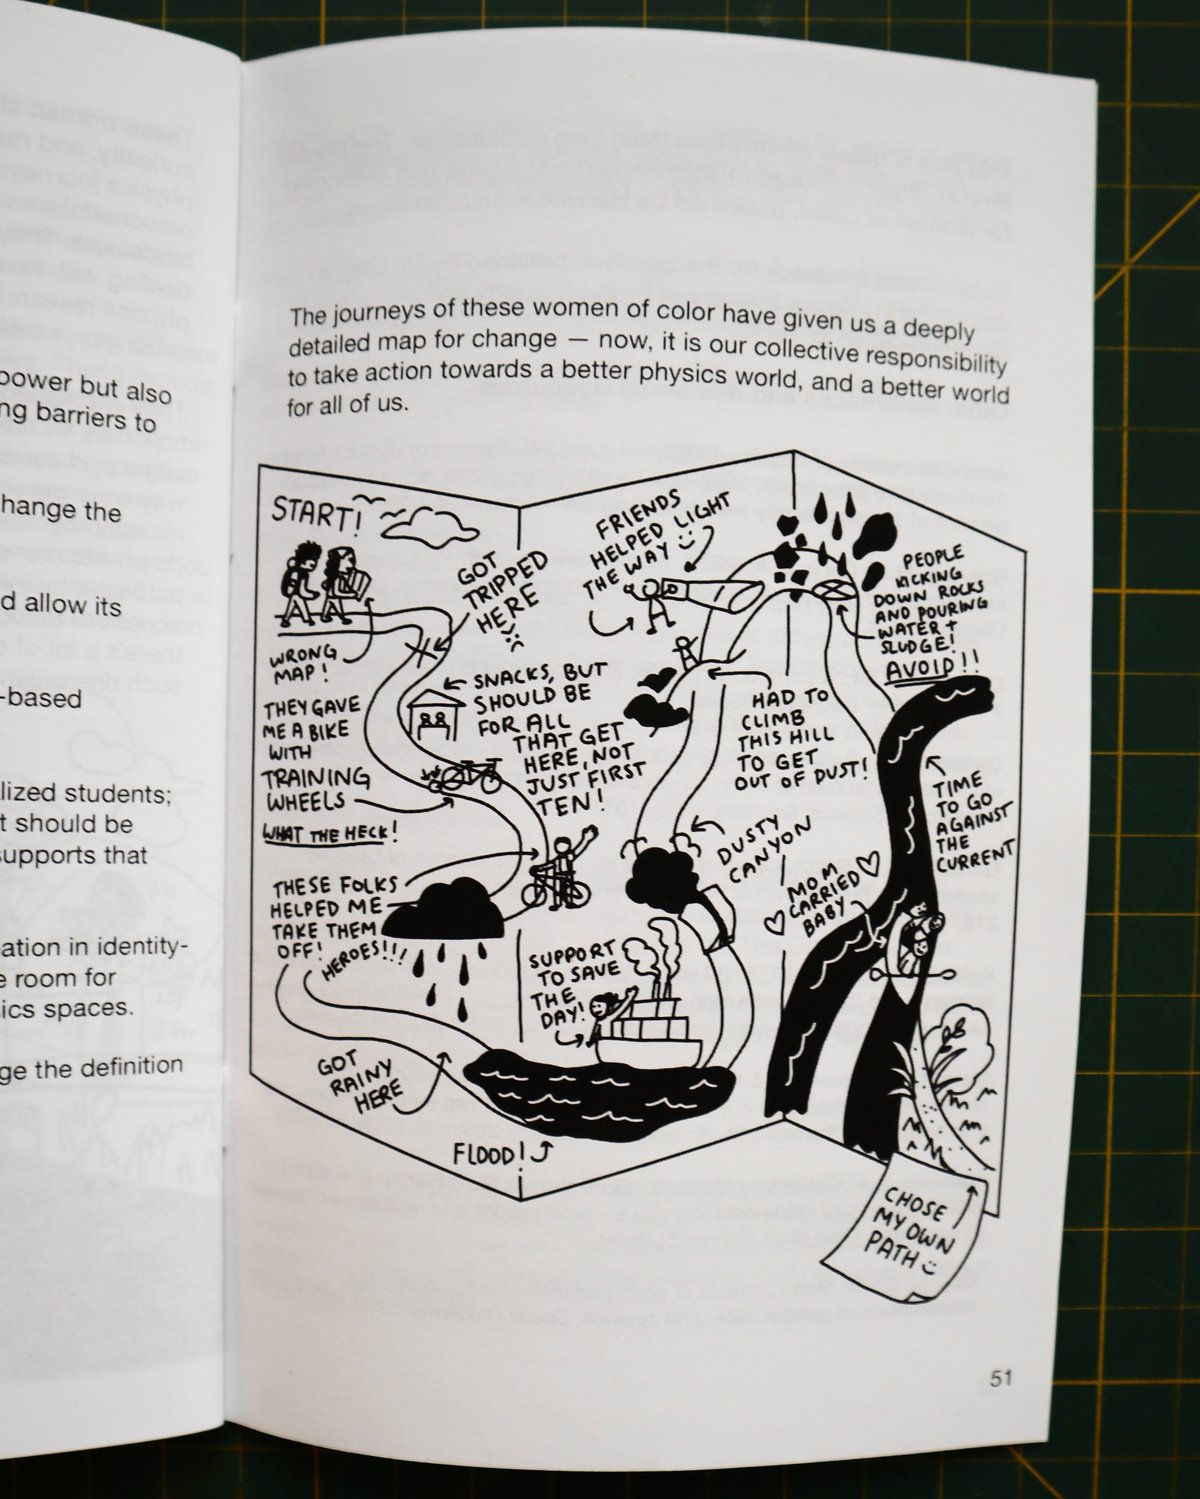 power but also
ng barriers to
hange the
d allow its
-based
lized students;
t should be
supports that
ation in identity-
e room for
ics spaces.
ge the definition
The journeys of these women of color have given us a deeply
detailed map for change — now, it is our collective responsibility
to take action towards a better physics world, and a better world
for all of us.
START!
WRONG
MAP!
GOT
TRIPPED
HERE
THEY GAVE
ME A BIKE
WITH
TRAINING
WHEELS
WHAT THE HECK!
SNACKS, BUT
SHOULD BE
FOR ALL
THAT GET
HERE, NOT
JUST FIRST
TEN!
THESE FOLKS
HELPED ME
TAKE THEM
OFF!
HEROES!!!
GOT
RAINY
HERE
FLOOD!
SUPPORT
TO SAVE
THE
DAY!
DUSTY
CANYON
HAD TO
CLIMB
THIS HILL
TO GET
OUT OF DUST!
FRIENDS
HELPED LIGHT
THE WAY
PEOPLE
KICKING
DOWN ROCKS
AND POURING
WATER +
SLUDGE!
AVOID!!
TIME
TO GO
AGAINST
THE
CURRENT
MOM
CARRIED
BABY
CHOSE
MY OWN
PATH
51